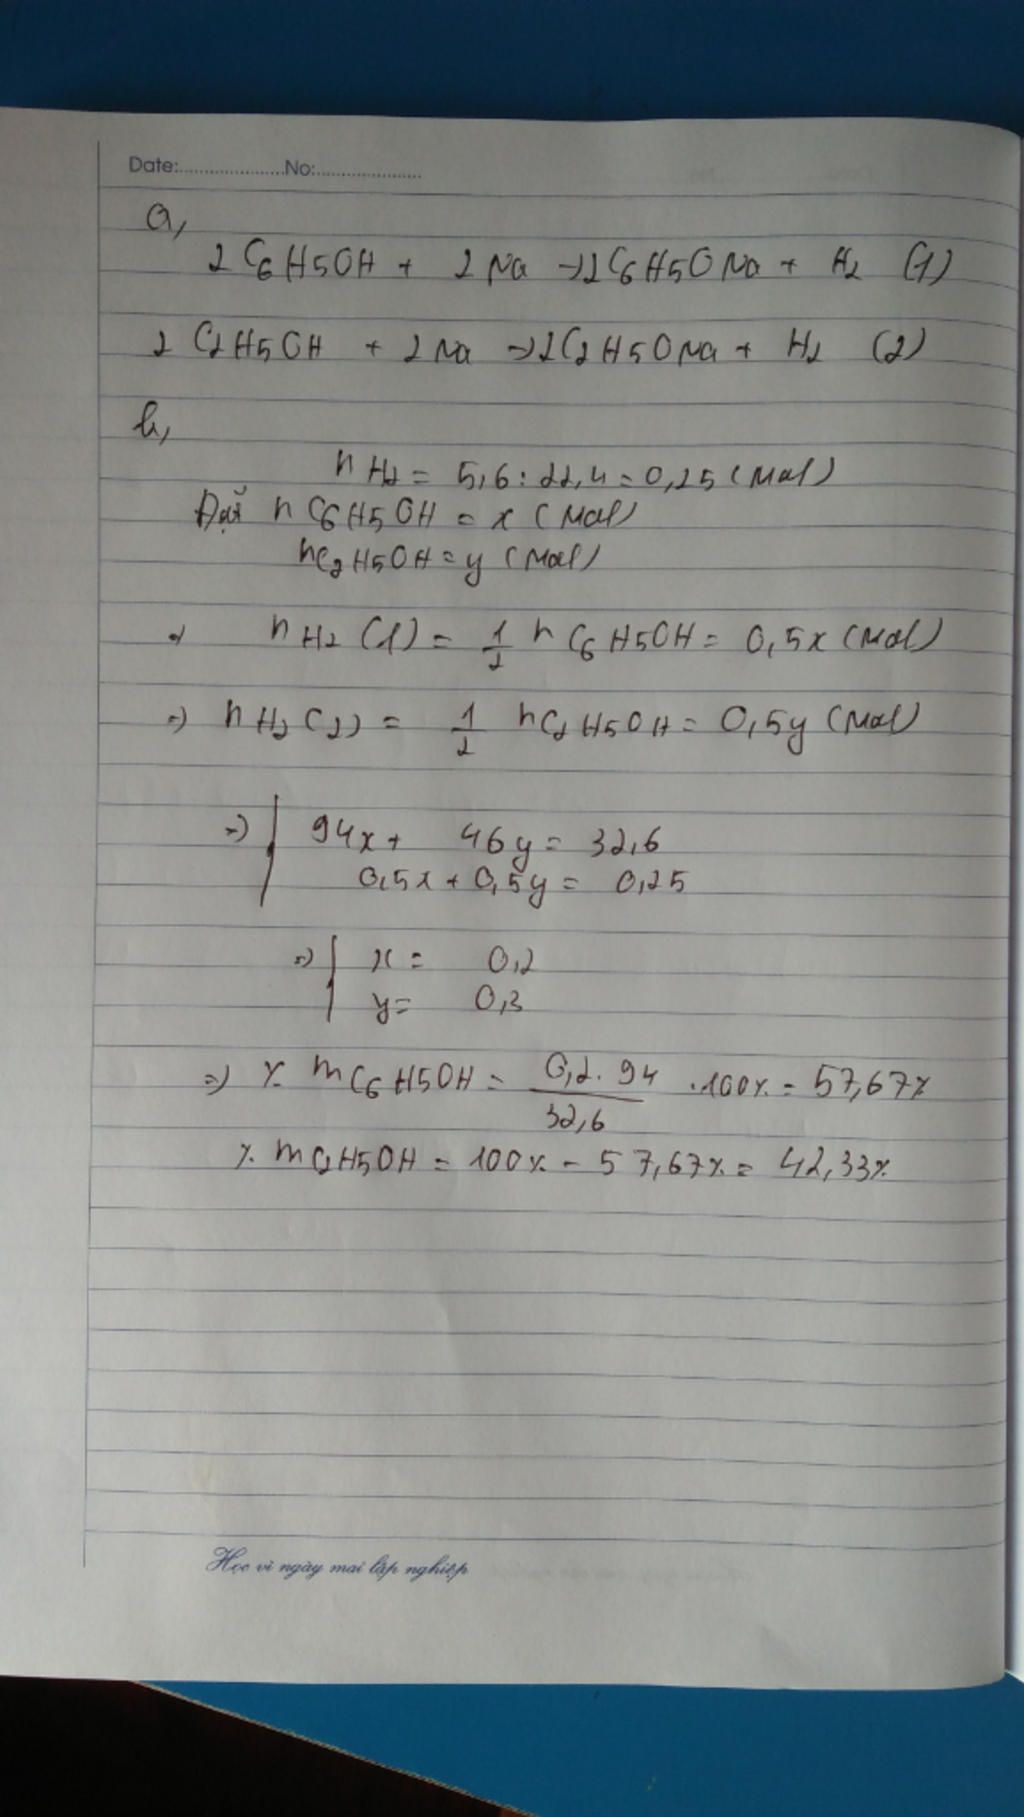 Date:....................No:.....................
a,
2C6H5OH + 2Na → 2C6H5ONa + H2 (1)
2C2H5OH + 2Na → 2C2H5ONa + H2 (2)
b,
nH2 = 5,6 : 22,4 = 0,25 (mol)
Đặt nC6H5OH = x (mol)
nC2H5OH = y (mol)
⇒ nH2 (1) = 1/2 nC6H5OH = 0,5x (mol)
⇒ nH2 (2) = 1/2 nC2H5OH = 0,5y (mol)
⇒ | 94x + 46y = 32,6
0,5x + 0,5y = 0,25
⇒ | x = 0,2
y = 0,3
⇒ % mC6H5OH = 0,2.94/32,6 .100% = 57,67%
% mC2H5OH = 100% - 57,67% = 42,33%
Học vì ngày mai lập nghiệp